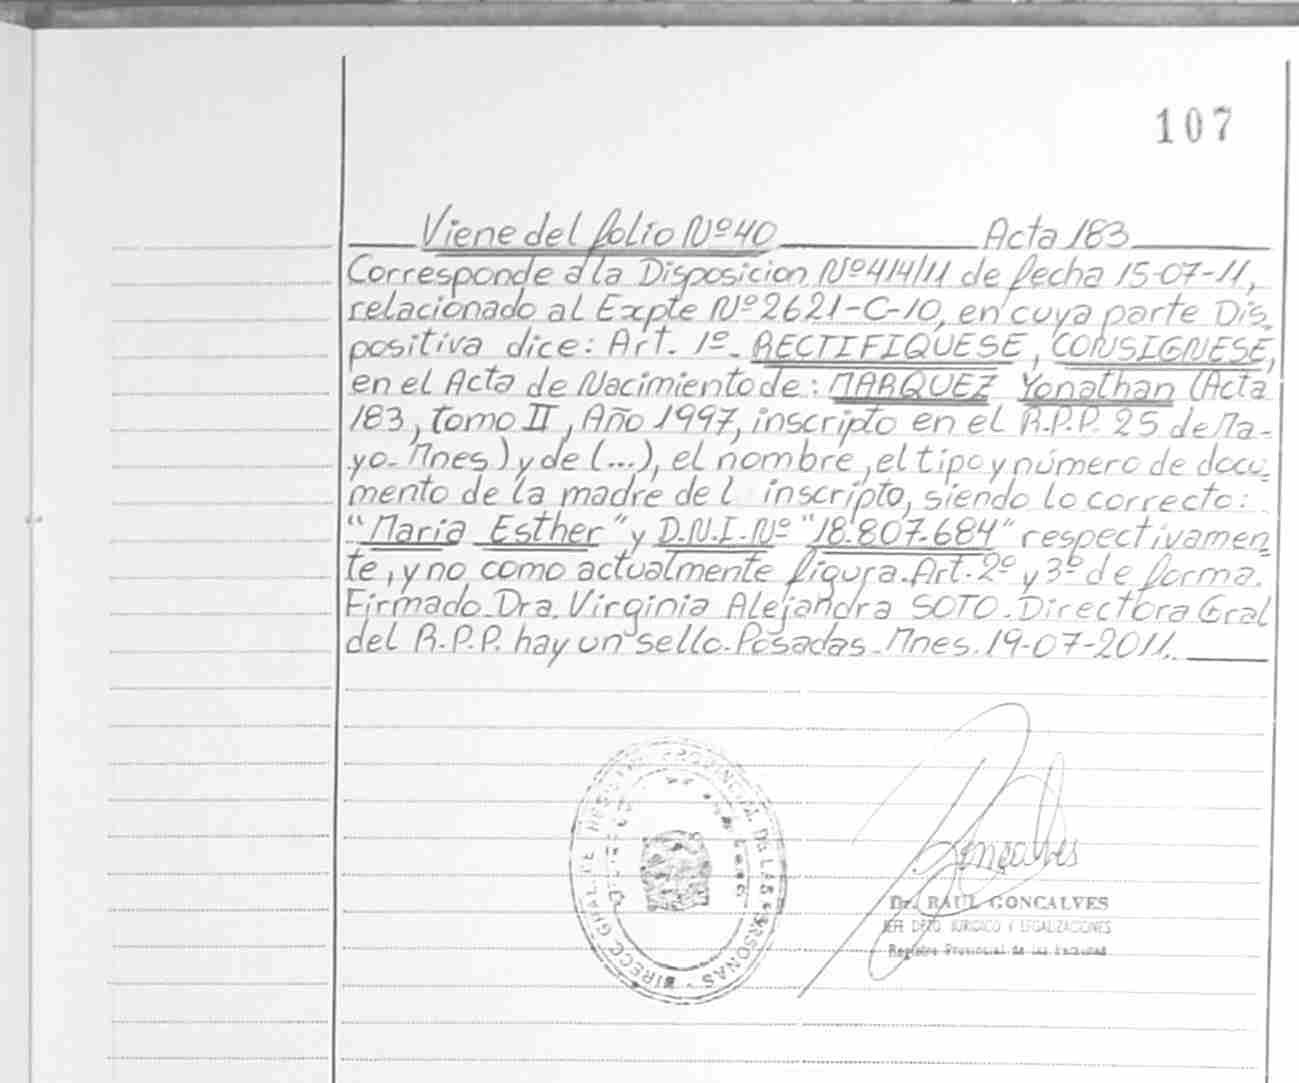 107
Viene del folio Nº 40 Acta 183
Corresponde a la Disposicion Nº 414/11 de fecha 15-07-11,
relacionado al Expte Nº 2621-C-10, en cuya parte Dis-
positiva dice: Art. 1º- RECTIFIQUESE, CONSIGNESE,
en el Acta de Nacimiento de: MARQUEZ Yonathan (Acta
183, tomo II, Año 1997, inscripto en el R.P.P. 25 de Ma-
yo- Mnes) y de (...), el nombre, el tipo y número de docu-
mento de la madre del inscripto, siendo lo correcto:
"Maria Esther" y D.N.I. Nº "18.807.684" respectivamen-
te, y no como actualmente figura. Art. 2º y 3º de forma.
Firmado. Dra. Virginia Alejandra SOTO. Directora Gral
del R.P.P. hay un sello. Posadas- Mnes. 19-07-2011.
DIRECC. GRAL. DE REGISTRO PROVINCIAL DE LAS PERSONAS
Gonçalves
Dr. RAUL GONCALVES
JEFE DPTO. JURIDICO Y LEGALIZACIONES
Registro Provincial de las Personas